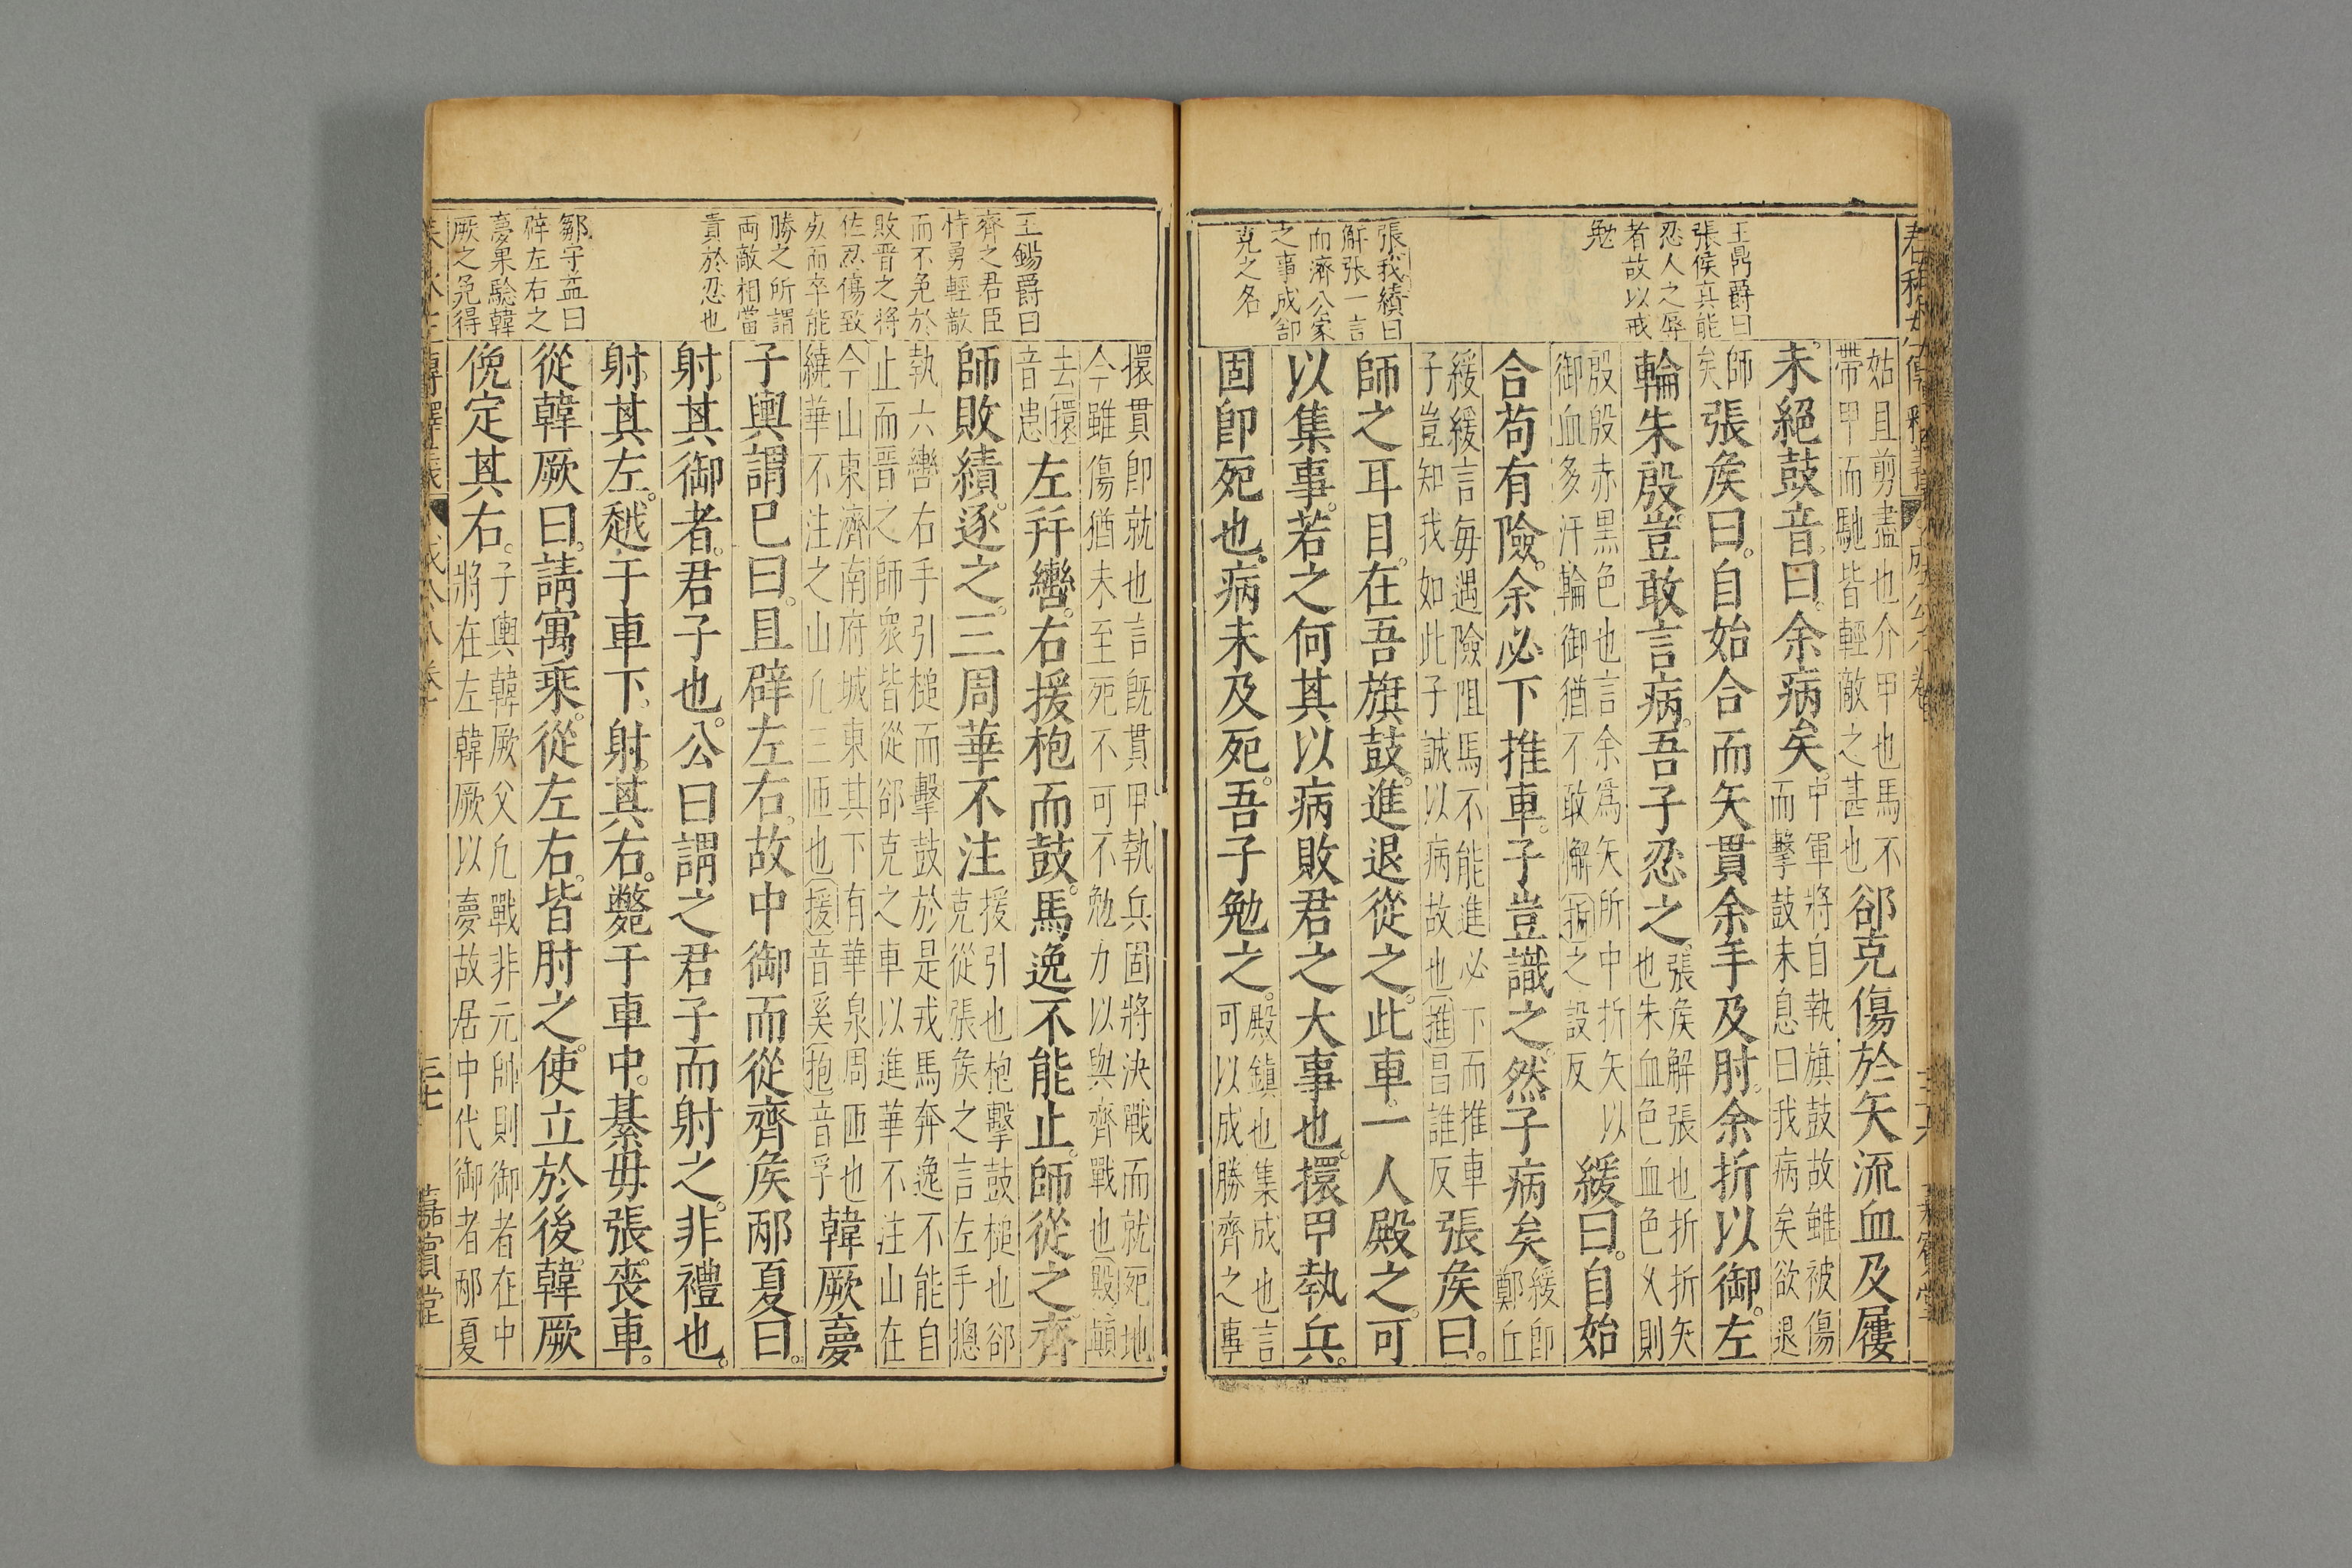 姑且剪盡也介甲也馬不
帶甲而馳皆輕敵之甚也
郤克傷於矢流血及屨
未絕鼓音曰余病矣
中軍將自執旗鼓故雖被傷
而擊鼓未息曰我病矣欲退
師
矣
張矦曰自始合而矢貫余手及肘余折以御左
輪朱殷豈敢言病吾子忍之
張矦解張也折折矢
也朱血色血色久則
殷殷赤黑色也言余爲矢所中折矢以
御血多汙輪御猶不敢懈折之設反
緩曰自始
合苟有險余必下推車子豈識之然子病矣
緩即
鄭丘
緩緩言每遇險阻馬不能進必下而推車
子豈知我如此子誠以病故也推昌誰反
張矦曰
師之耳目在吾旗鼓進退從之此車一人殿之可
以集事若之何其以病敗君之大事也擐甲執兵
固卽死也病未及死吾子勉之
殿鎮也集成也言
可以成勝齊之事
王鼎爵曰
張侯真能
忍人之辱
者故以戒
勉
張我續曰
解張一言
而濟公家
之事成郤
克之名
擐貫卽就也言旣貫甲執兵固將決戰而就死地
今雖傷猶未至死不可不勉力以與齊戰也殿顛
去擐
音患
左幷轡右援枹而鼓馬逸不能止師從之齊
師敗績逐之三周華不注
援引也枹擊鼓槌也郤
克從張矦之言左手總
執六轡右手引槌而擊鼓於是戎馬奔逸不能自
止而晋之師衆皆從郤克之車以進華不注山在
今山東濟南府城東其下有華泉周匝也
繞華不注之山凢三匝也援音爰枹音孚
韓厥夢
子輿謂已曰且辟左右故中御而從齊矦邴夏曰
射其御者君子也公曰謂之君子而射之非禮也
射其左越于車下射其右斃于車中綦毋張喪車
從韓厥曰請寓乘從左右皆肘之使立於後韓厥
俛定其右
子輿韓厥父凢戰非元帥則御者在中
將在左韓厥以夢故居中代御者邴夏
王錫爵曰
齊之君臣
恃勇輕敵
而不免於
敗晋之將
佐忍傷致
死而卒能
勝之所謂
両敵相當
責於忍也
鄒守益曰
辟左右之
夢果驗韓
厥之免得
三七
嘉賓堂